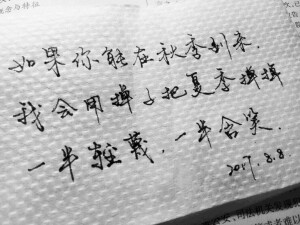 如果你能在秋季到来,
我会用掸子把夏季掸掸
一半轻蔑,一半含笑.
2017.8.8